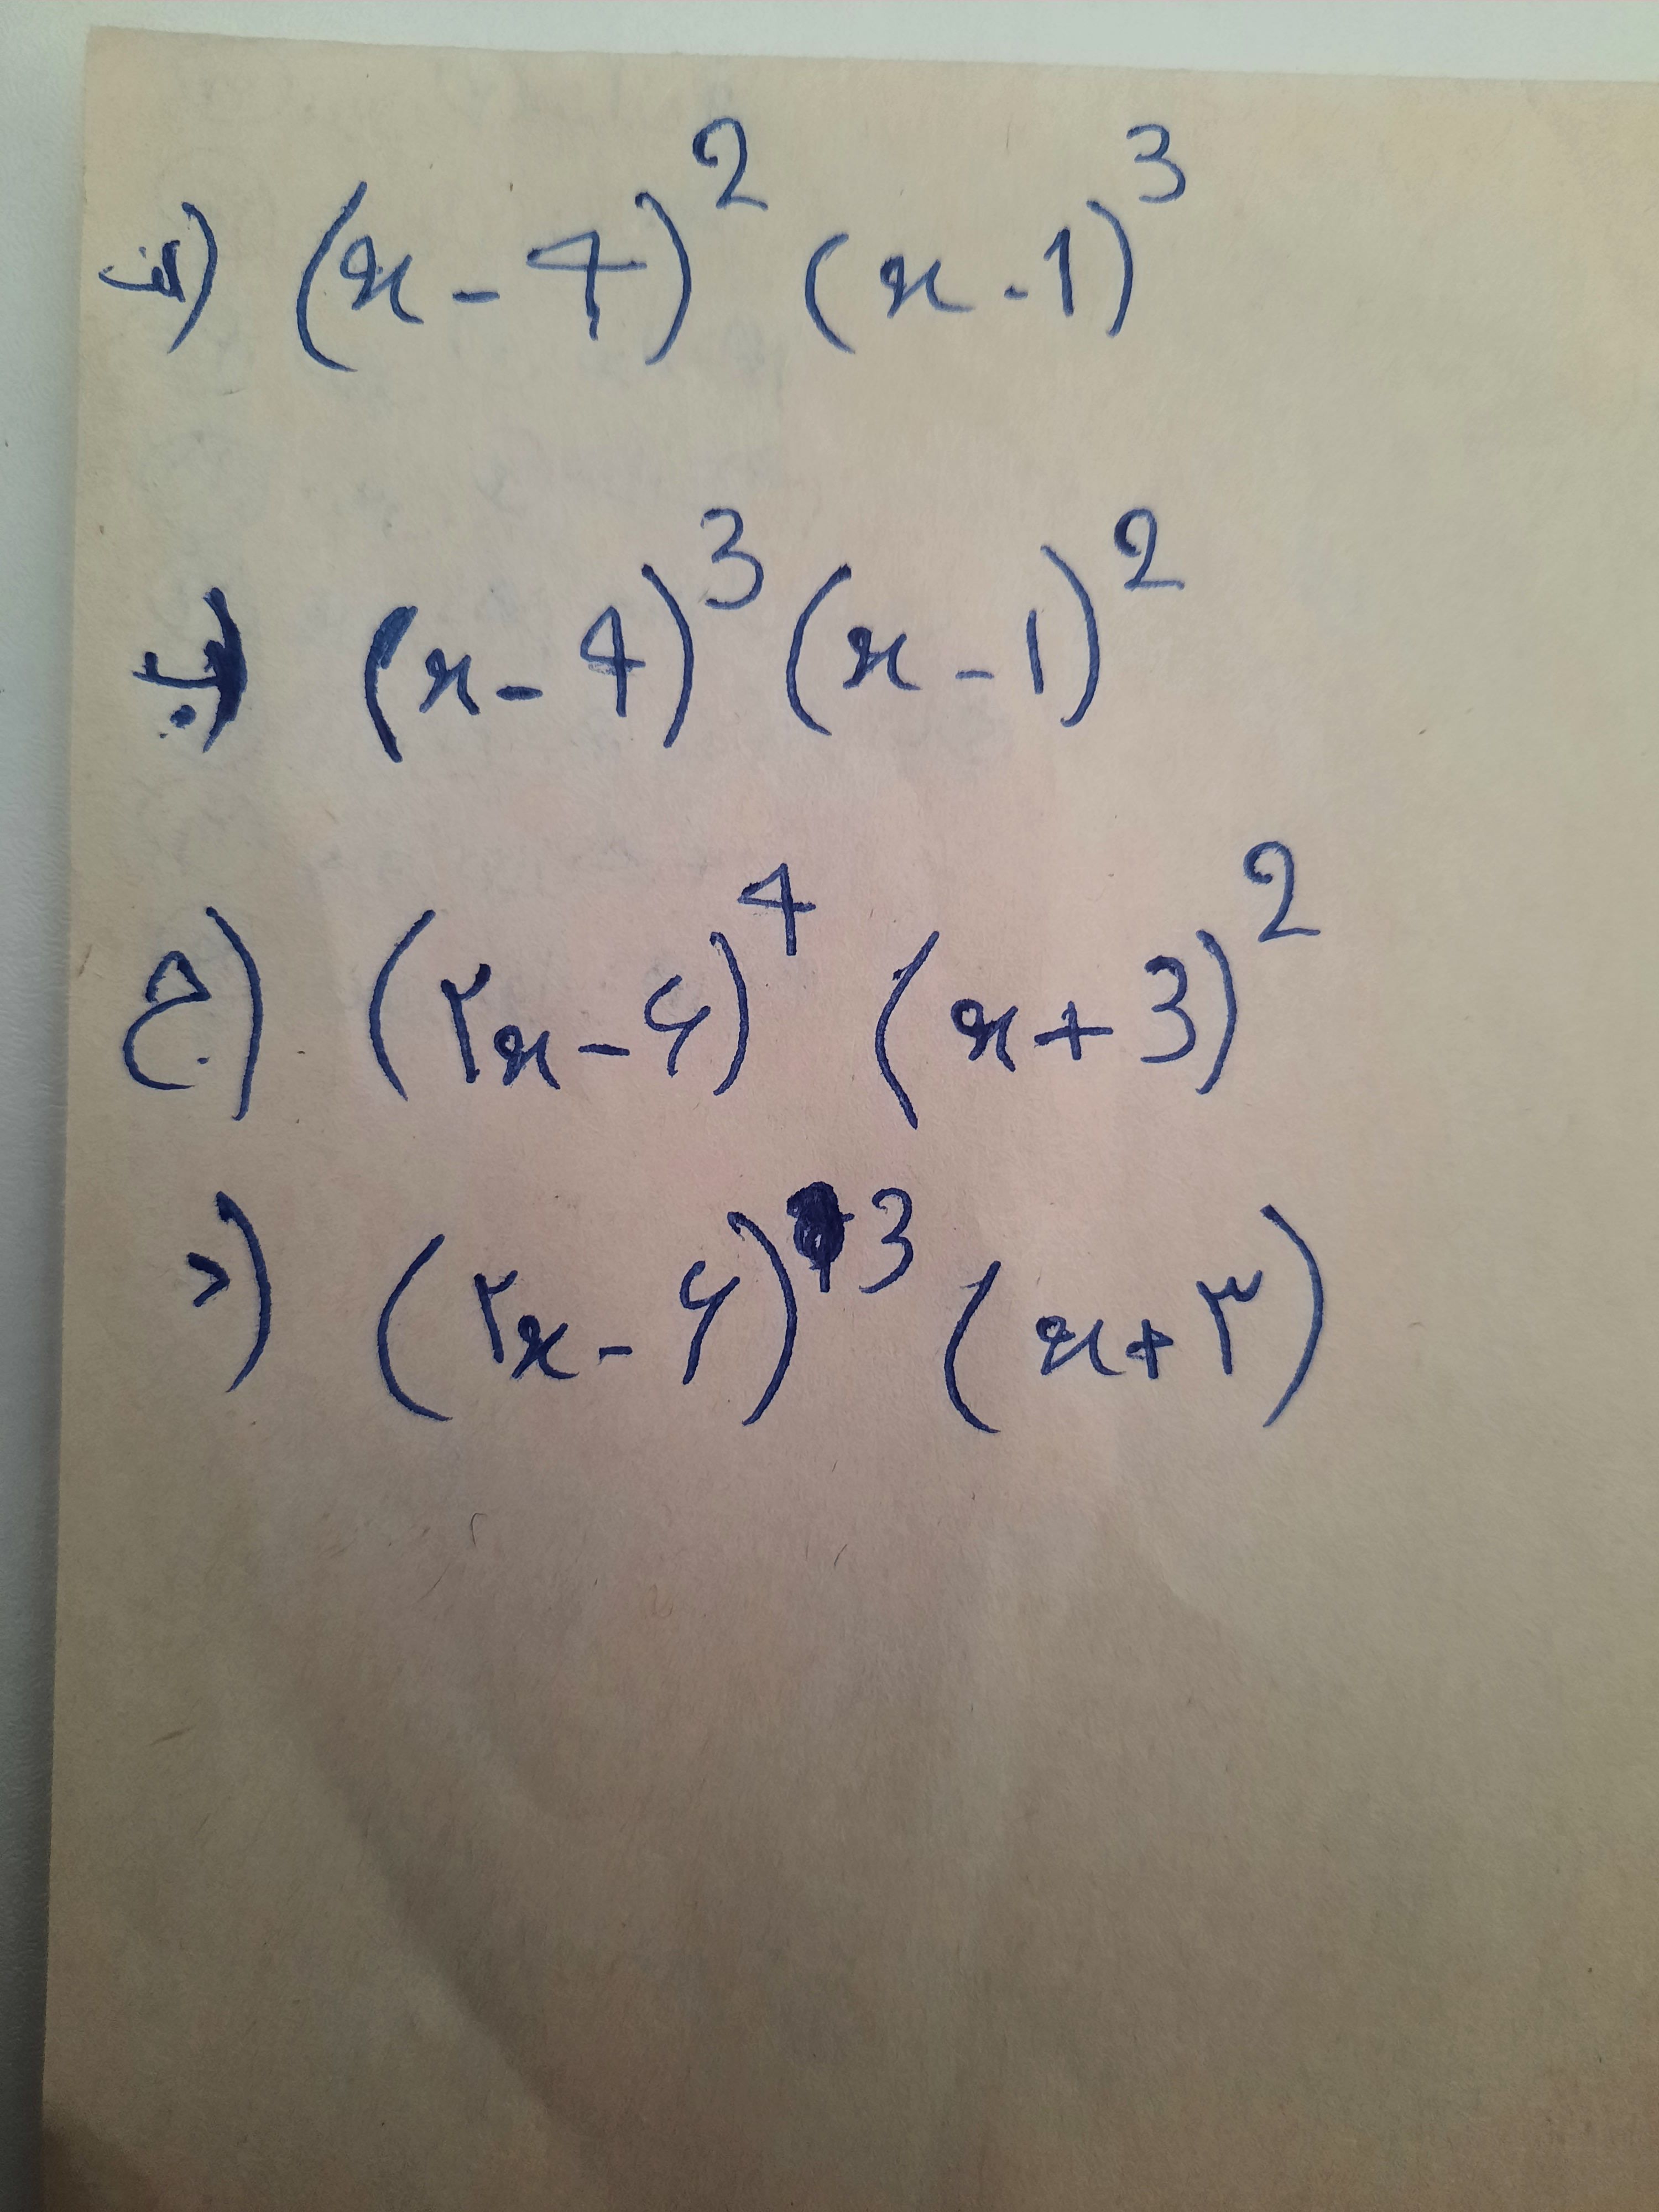 الف) (x-4)² (x-1)³
ب) (x-4)³ (x-1)²
ج) (۲x-۶)⁴ (x+3)²
د) (۲x-۶)³ (x+۳)